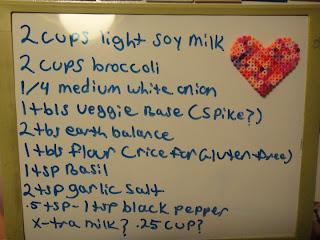 2 cups light soy milk
2 cups broccoli
1/4 medium white onion
1 tbls veggie Base (Spike?)
2 tbs earth balance
1 tbls flour (rice for Gluten-free)
1 tsp Basil
2 tsp garlic salt
.5 tsp - 1 tsp black pepper
x-tra milk? .25 cup?